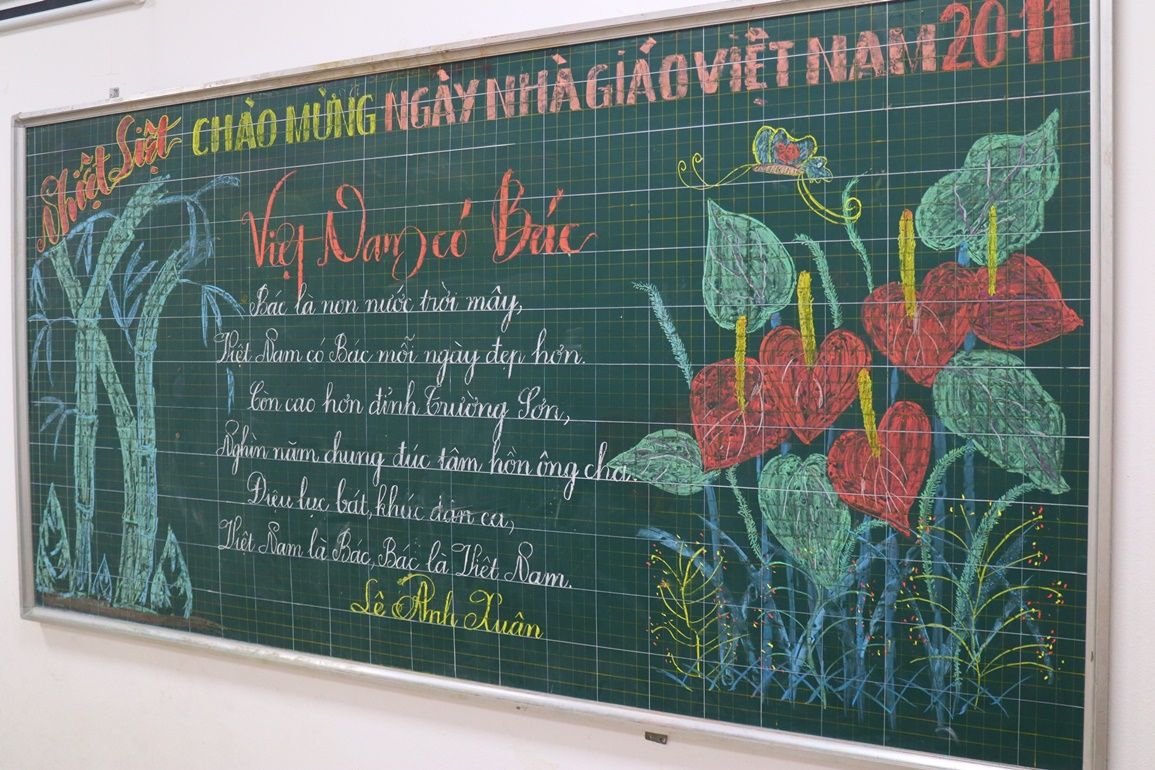 Nhiệt Liệt CHÀO MỪNG NGÀY NHÀ GIÁO VIỆT NAM 20-11
Việt Nam có Bác
Bác là non nước trời mây,
Việt Nam có Bác mỗi ngày đẹp hơn.
Còn cao hơn đỉnh Trường Sơn,
Nghìn năm chung đúc tâm hồn ông cha.
Điệu lục bát, khúc dân ca,
Việt Nam là Bác, Bác là Việt Nam.
Lê Anh Xuân